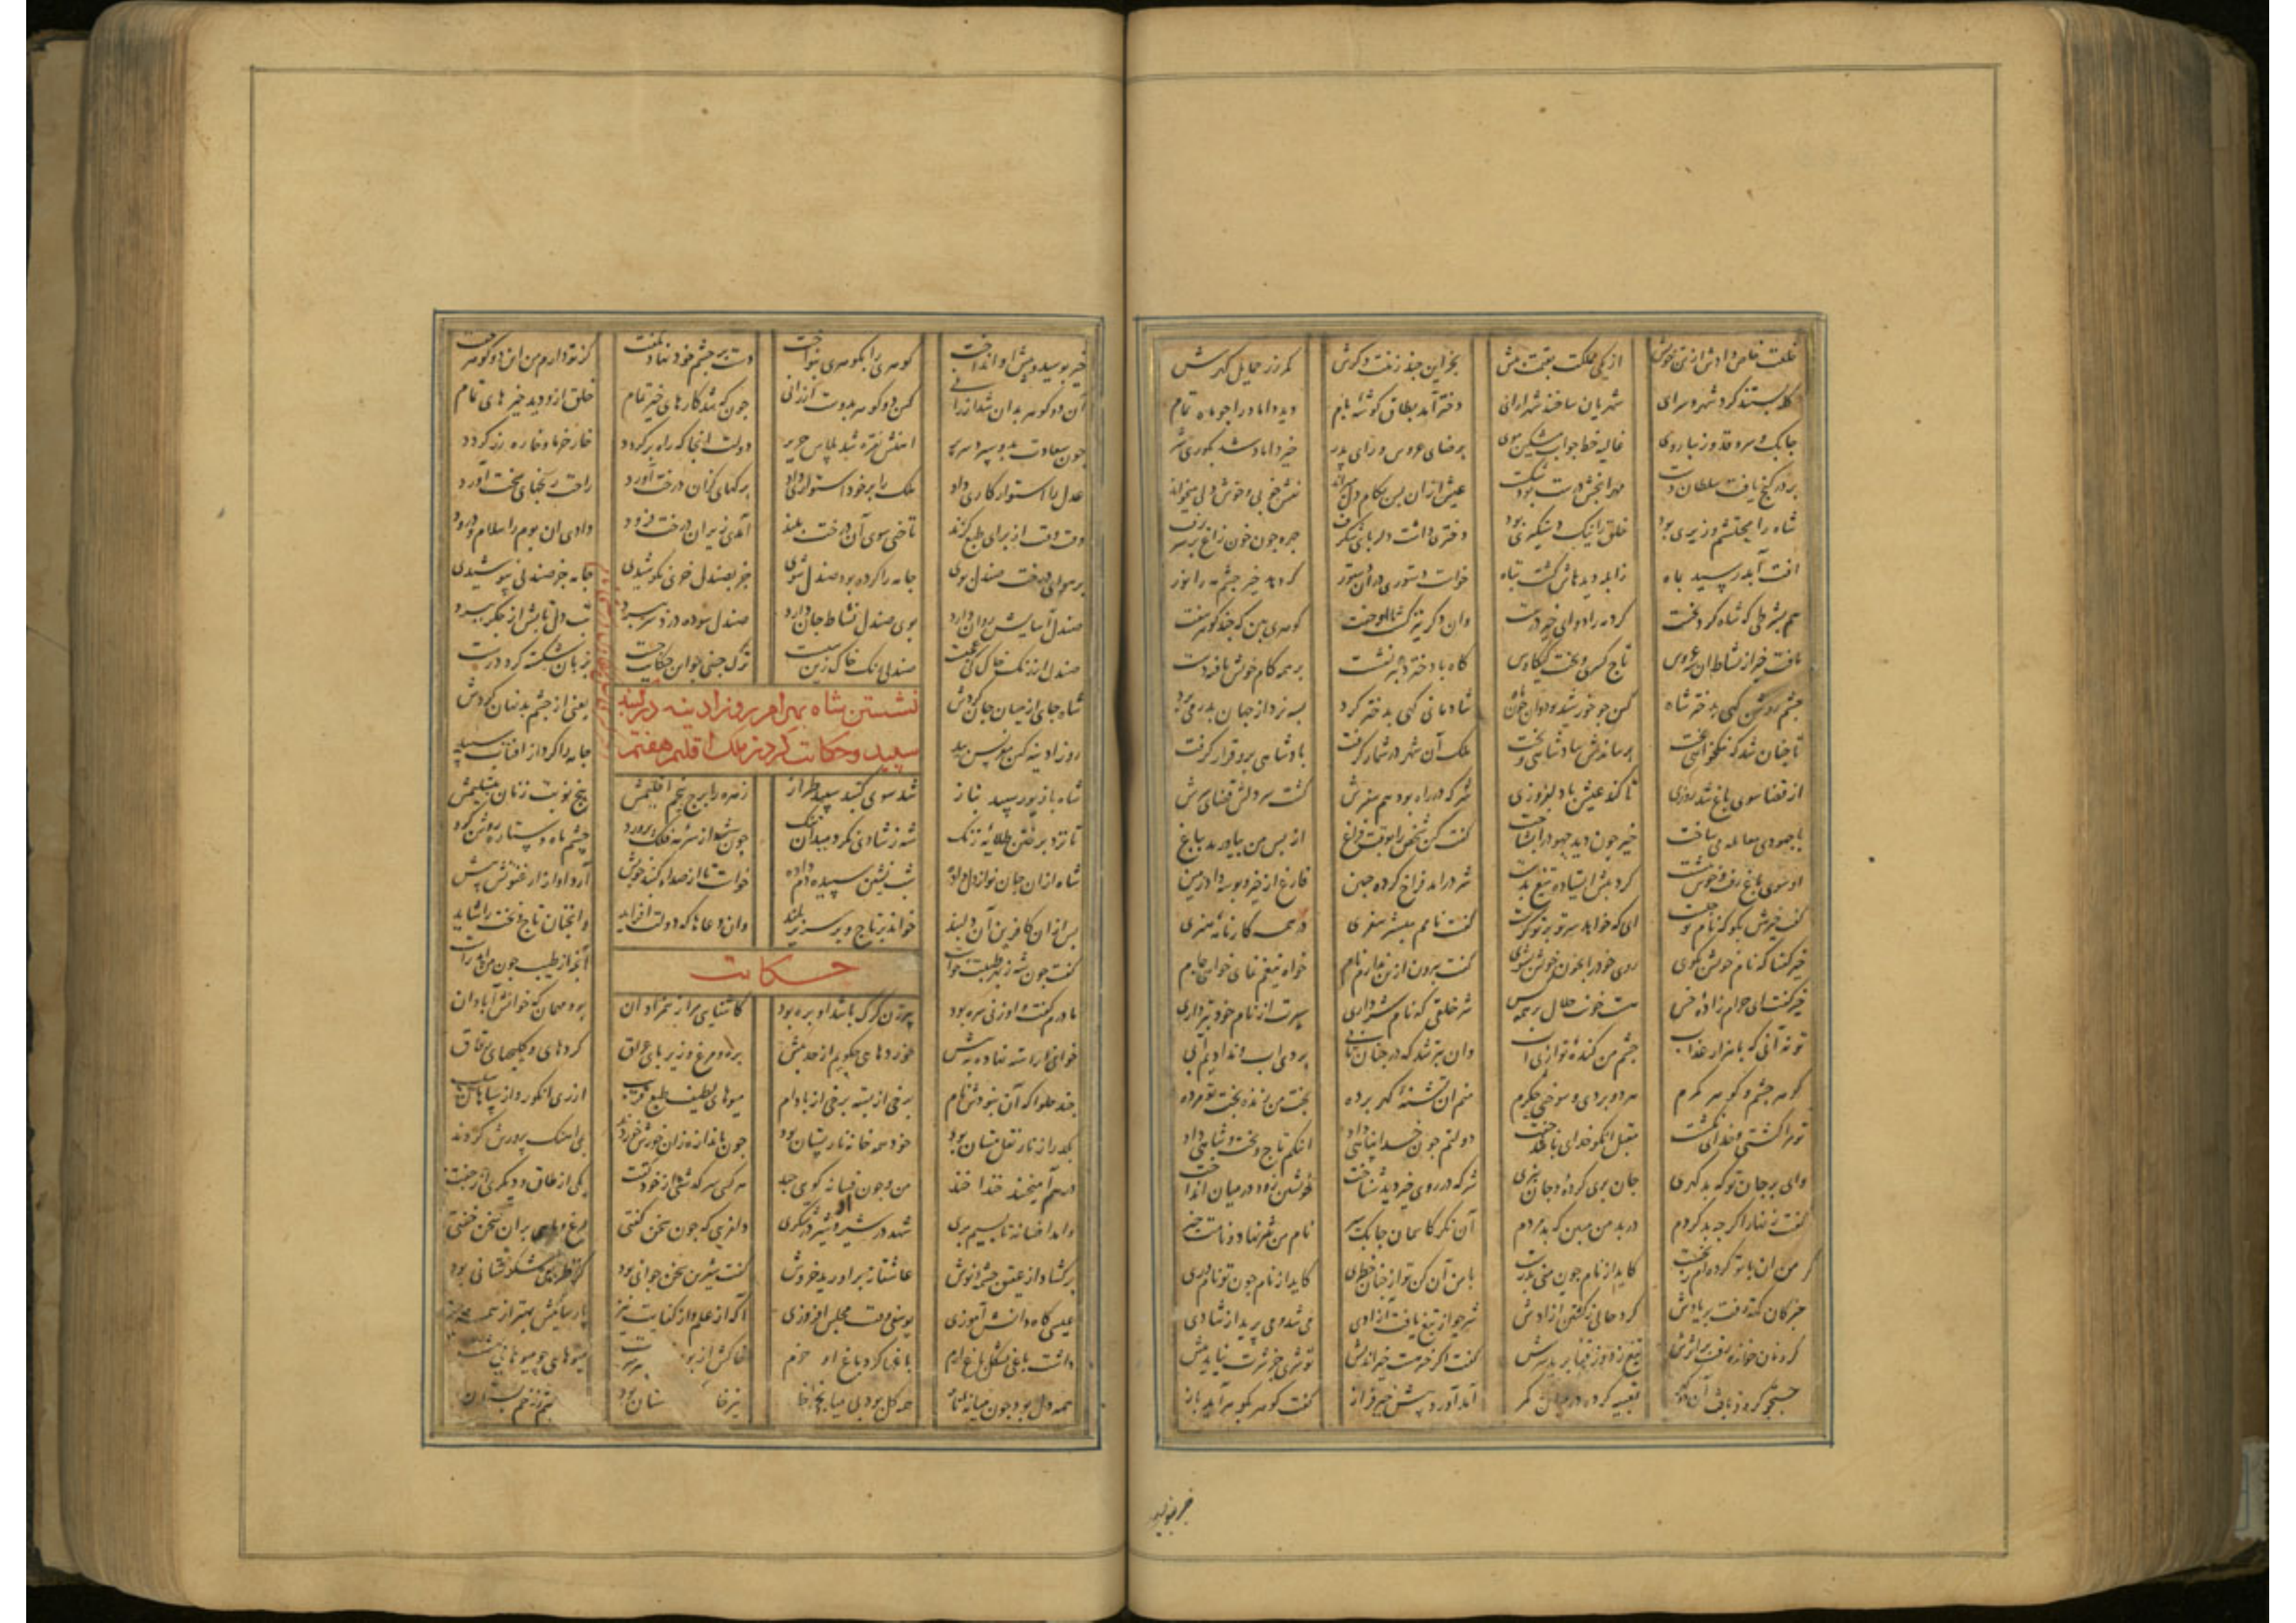 خلعت خاص دادش از تن خویش از یکی مملکت بقیمت بیش بجز این چند زینت و کرش کمر زر حمایل کهرش
کله بستند کرد شهر و سرای شهریان ساختند شهرارای دختر آمد بطاق کوشه بام دید داماد را جو ماه تمام
جابک و سرو قد و زیبا روی غالیه خط جوان مشکین موی برضای عروس و رای پدر خیر داماد شد بکوری شر
بر در کنج یافت سلطان دست مهر انجش درست بود شکست عیش ازان بس بکام دل میراند نقش خوبی و خوش دلی میخواند
شاه را محتشم وزیری بود خلق را نیک دستکیری بود دختری داشت دلربای شکرف جهره جون خون زاغ بر سر برف
افت آبله رسید بماه زابله دیدهاش کشت تباه خواست دستوری در آن دستور که دهد خیر جشم مه را نور
هم بشرطی که شاه کرد نخست کرد مه را دوای خیر درست وان دکر نیز کشت با او جفت کوهری بین که جند کوهر سفت
یافت خیر از نشاط آن سه عروس تاج کسری و تخت کیکاوس کاه با دختر وزیر نشست بر همه کام خویش یافته دست
جشم روشن کهی بدختر شاه کین جو خورشید بود و آن جون ماه شادمانی کهی بدختر کرد بسه نرد از جهان بدر می برد
تا جنان شد که نیکخواهی بخت برساندش بپادشاهی و تخت ملک آن شهر در شمار کرفت پادشاهی برو قرار کرفت
از قضا سوی باغ شد روزی تا کند عیش با دلفروزی شر که در راه بود هم سفرش کشت سر دلش قضای سرش
با جهودی معامله می ساخت خیر جون دید جهد را بشناخت کفت کین شخص را بوقت فراغ از بس من بیاورید بباغ
او سوی باغ رفت و خوش بنشست کرد پیش ایستاده تیغ بدست شر درآمد فراخ کرده جبین فارغ از خیر بوسه داد زمین
کفت خیرش بکو که نام تو جیست ای که خواهد سر تو بر تو کریست کفت نامم مبشر سفری در همه کارنامه هنری
خیر کفتا که نام خویش بکوی روی خود را بخون خویش بشوی کفت بیرون ازین ندارم نام خواه تیغم نمای خواهی جام
خیر کفت ای حرام زاده خس هست خونت حلال بر همه کس شر خلقی که نام شر داری سیرت از نام خود بتر داری
تو نه آنی که با هزار عذاب جشم من کنده توی از پی آب وان بتر شد که در جنان تابی بردی آب و ندادیم آبی
کوهر جشم و کوهر کمرم هر دو بردی و سوختی جکرم منم آن تشنه کهر برده بخت من زنده بخت تو مرده
تو مرا کشتی و خدای نکشت مقبل انکو خدای باشد پشت دولتم جون خدا پناهی داد اینکم تاج و تخت و شاهی داد
وای بر جان تو که بد کهری جان بری کرده و جان نبری شر که در روی خیر دید شناخت خویشتن زود در میان انداخت
کفت زنهار اکرجه بد کردم در بد من مبین که بد مردم آن نکر کاسمان جابک سیر نام من شر نهاد و نامت خیر
کر من آن با تو کرده ام ز نخست کاید از نام جون منی بدرست با من آن کن تو از جنان خطری کاید از نام جون تو ناموری
خیر کان نکته رفت بر یادش کرد حالی ز کشتن آزادش شر جو از تیغ یافت آزادی می شد و می پرید از شادی
کرد خونخواره رفت بر اثرش تیغ زد و از قفا برید سرش کفت اکر خیرست خیر اندیش تو شری جز شرت نیاید پیش
جستجو کرد و یافت آن دو کهر تعبیه کرده در میان کمر آمد آورد پیش خیر فراز کفت کوهر بکوهر آید باز
خیر بوسید
خیر بوسید و پیش او انداخت کوهری را بکوهری بنواخت دست بر جشم خود نهاد و بکفت کز تو دارم من این دو کوهر جفت
آن دو کوهر بدان شد ارزانی کین دو کوهر بدوست ارزانی جون که شد کارهای خیر تمام خلق ازو دید خیرهای تمام
جون سعادت بدو سپرد سریر آهنش نقره شد پلاس حریر دولت انجا که راهبر کردد خار خرما و خاره زر کردد
عدل را استوار کاری داد ملک را بر خود استواری داد برکهای کزان درخت آورد راحت رنجهای سخت آورد
وقت وقت از برای طبع کزند تاختی سوی آن درخت بلند آمدی زیر آن درخت فرود دادی آن بوم را سلام و درود
بر هوای درخت صندل بوی جامه را کرده بود صندل شوی جز بصندل خری نکوشیدی جامه جز صندلی نپوشیدی
صندل آسایش روان دارد بوی صندل نشاط جان دارد صندل سوده درد سر ببرد تب ز دل تابش از جکر ببرد
صندل از رنک خاک کی عجبست صندلی رنک خاک زین سببست ترک جینی جو این حکایت جست بزبان شکسته کرد درست
شاه جای از میان جان کردش یعنی از جشم بد نهان کردش
نشستن شاه بهرام روز ادینه در کنبد
سپید و حکایت کردن ملک اقلیم هفتم
روز ادینه کین مقرنس بید جامه را کرد از آفتاب سپید
شاه با زیور سپید بناز شد سوی کنبد سپید طراز زهره را برج پنجم اقلیمش پنج نوبت زنان بتسلیمش
تا نزد بر ختن طلایه زنک شه ز شادی نکرد میدان تنک جون شد از سرمه فلک پرورد جشم ماه و ستاره روشن کرد
شاه ازان جان نواز دلداده شب نشین سپیده دم زاده خواست تا از صداء کنبد خویش آرد آواز ارغنونش پیش
پس ازان کافرین آن دلبند خواند بر تاج و بر سریر بلند وان دعاها که دولت افزاید وانجنان تاج و تخت را شاید
کفت جون شه ز بهر طیبت خواست آنچه از طیبت جون من اید راست
حکایت
مادرم کفت و او زنی سره بود پیرزن کرک باشد او بره بود کاشنایی مرا ز همزادان برد مهمان که خوانش آبادان
خوانی اراسته نهاده بپیش خوردهای جکویم از حد بیش بره و مرغ و زیربای عراق کردهای و کلیجهای رقاق
جند حلوا که آن نبودش نام برخی از پسته برخی از بادام میوهای لطیف طبع فریب از ری انکور و از سپاهان سیب
بکذر از نار نقل مستان بود خود همه خانه نار پستان بود جون باندازه زان خورش خوردند بمی آهنک پرورش کردند
درهم آمیختند خندا خند من و جون من فسانه کوی جند هر کسی سرکذشتی از خود کفت یکی از طاق و دیکری از جفت
آمد افسانه تا بسیم بری شهد در شیر و شیر در شکری دلفریبی که جون سخن کفتی مرغ و ماهی بران سخن خفتی
برکشاد از عقیق جشمه نوش عاشقانه برآورید خروش کفت شیرین سخن جوانی بود کز ظریفی شکرستانی بود
عیسی کاه دانش آموزی یوسفی وقت مجلس افروزی آکه از علم و از کفایت نیز پارسائیش بهتر از همه جیز
داشت باغی بشکل باغ ارم باغها کرد باغ او حرم خاکش از بوی میوهای جو میوهای بهشت
همه دل بود جون میانه نار همه کل بود بی میانجی خار تیزخا بستان بود